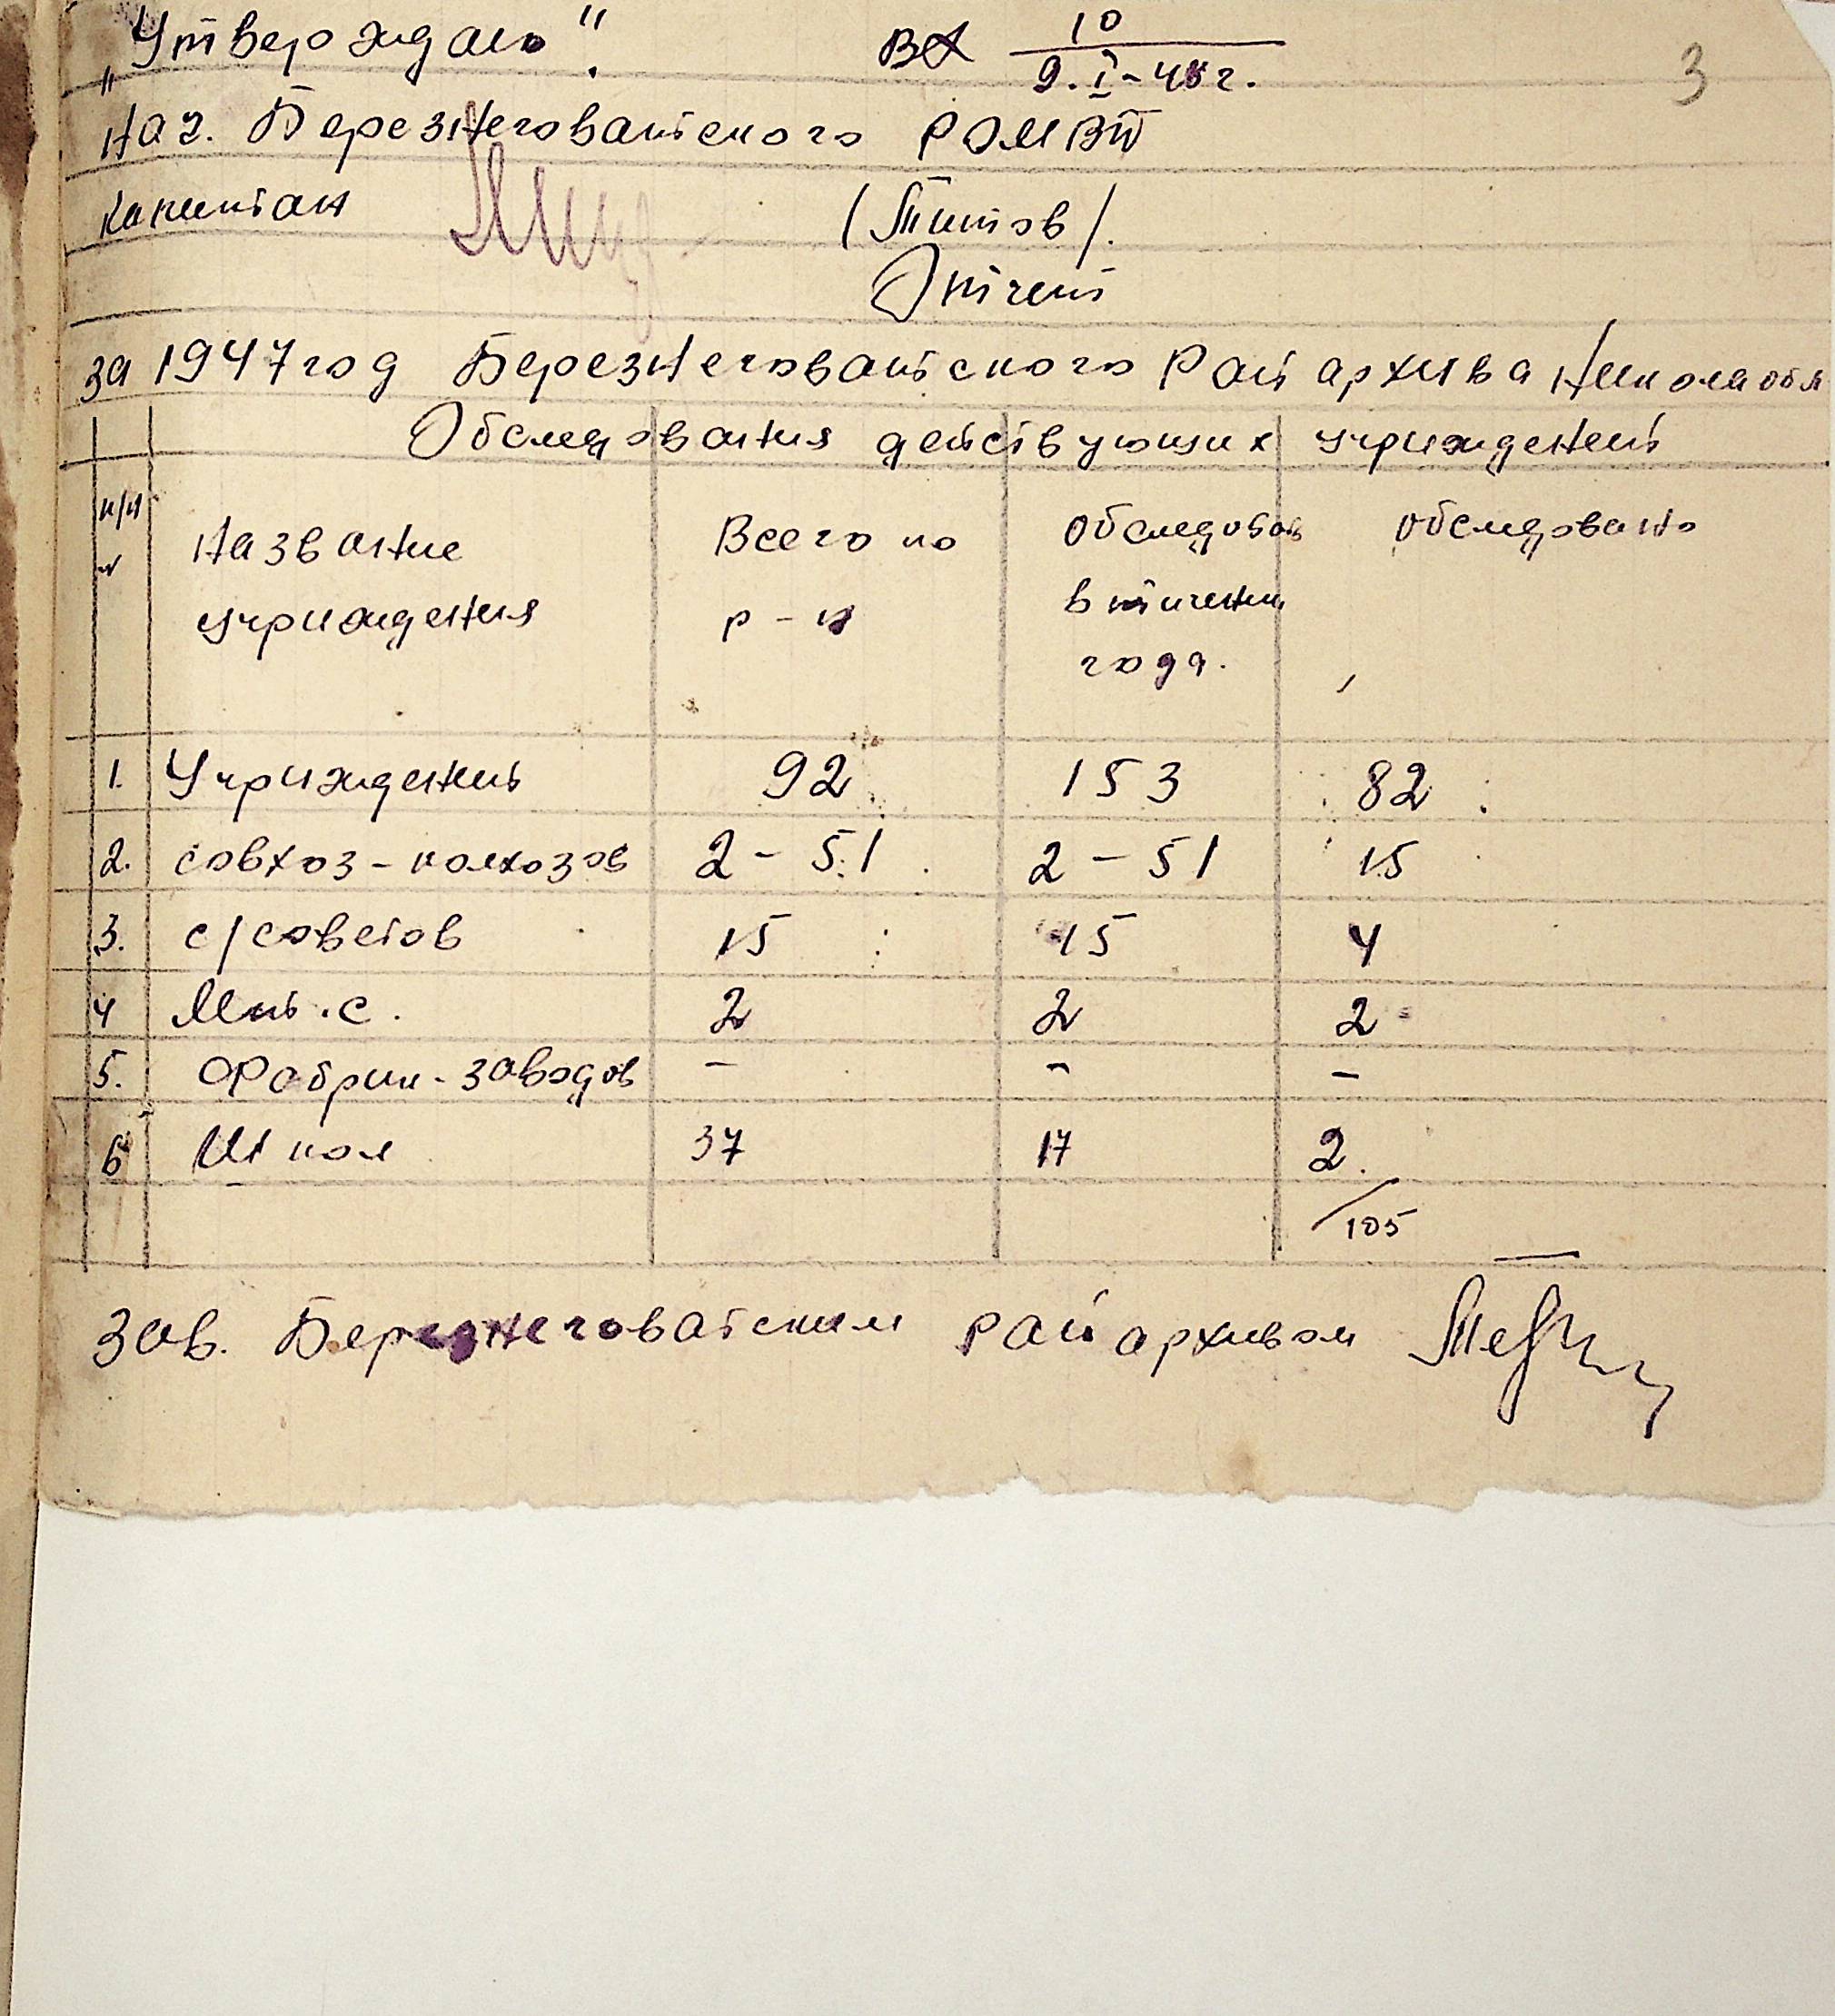 „Утверождаю“. вх 10
9.I-48 г.
3
Нач. Березнеговатского РОМВД
капитан (Титов).
Отчет
за 1947 год Березнеговатского Райархива Никола обл
Обследования действующих учриждений
н/н
№
Название учриждения
Всего по р-н
обследован в тичении года.
обследовано
1. Учриждений 92 153 82
2. совхоз-колхозов 2 - 51 2 - 51 15
3. с/советов 15 15 4
4 Мт.с. 2 2 2
5. Фабрик-заводов - - -
6 Школ 37 17 2.
105
Зав. Березнеговатским райархивом